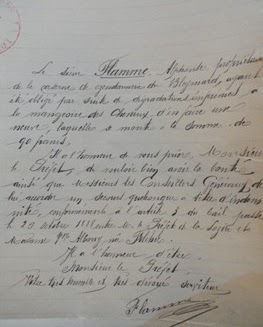 Le sieur Flamme, Alphonse, propriétaire
de la caserne de gendarmerie de Bleymard, ayant
été obligé par suite de dégradations imprévues à
la mangeoire des chevaux d'en faire une
neuve, laquelle a monté à la somme de
90 francs.
Il a l'honneur de vous prier, Monsieur
le Préfet, de vouloir bien avoir la bonté
ainsi que Messieurs les Conseillers Généraux de
lui accorder un secours quelconque à titre d'indem
nité, conformément à l'article 3 du bail passé
le 20 octobre 1888 entre Mr le Préfet de la Lozère et
Madame Vve née
J'ai l'honneur d'être,
Monsieur le Préfet,
Votre très humble et très dévoué serviteur
Flamme